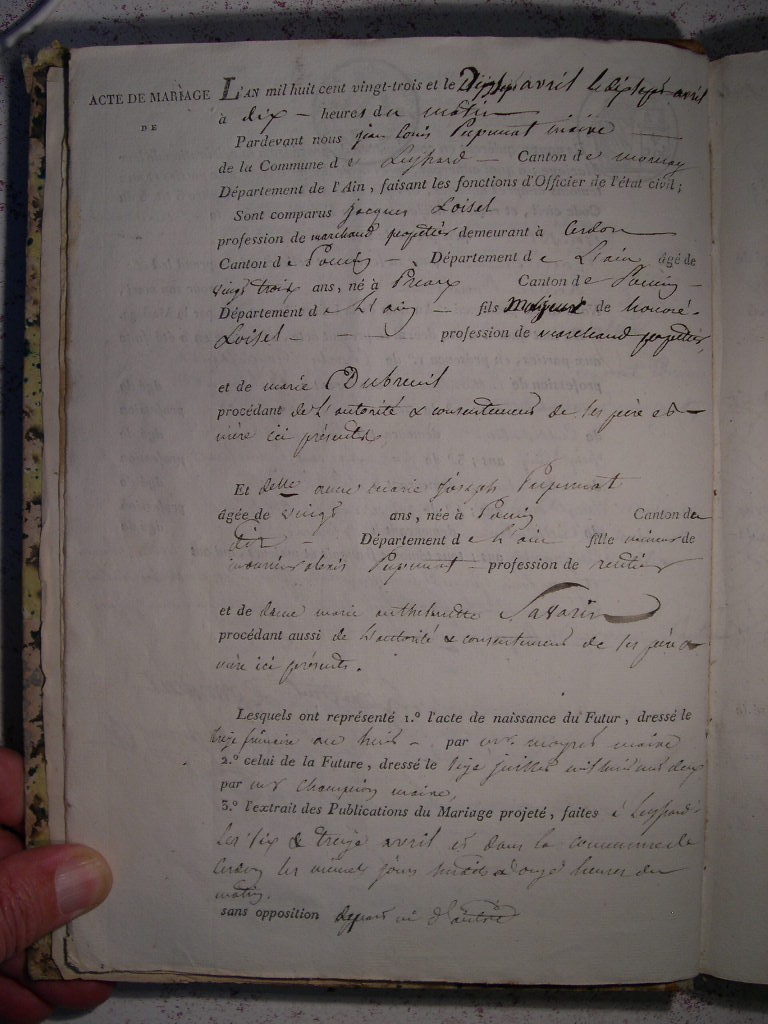 ACTE DE MARIAGE
DE
L'AN mil huit cent vingt-trois et le avril le dixsept avril
à dix – heures du matin
Pardevant nous jean louis Pupunat maire
de la Commune d e Leyssard – Canton de
Département de l'Ain, faisant les fonctions d'Officier de l'état civil;
Sont comparus jacques Loisel
profession de marchand demeurant à Cerdon
Canton de Poncin – Département de L'ain âgé de
vingt trois ans, né à Préaux Canton de
Département de L'ain – fils Majeur de honoré
Loisel – – – profession de marchand
et de marie Dubreuil
procédant de L'autorité & consentement de ses père et
mère ici présents
Et delle anne marie joseph Pupunat
âgée de vingt ans, née à Poncin Canton de
dit – Département de L'ain fille mineure de
alexis Pupunat – profession de rentier
et de dame marie anthelmette Savarin
procédant aussi de L'autorité & consentement de ses père &
mère ici présents.
Lesquels ont représenté 1.° l'acte de naissance du Futur, dressé le
treize frimaire an huit – par mr. maire
2.° celui de la Future, dressé le juillet mil huit cent deux
par mr Champion maire,
3.° l'extrait des Publications du Mariage projeté, faites à Leyssard
Les six & treize avril et dans la commune de
Cerdon les mêmes jours à onze heures du
matin.
sans opposition de part ni d'autre